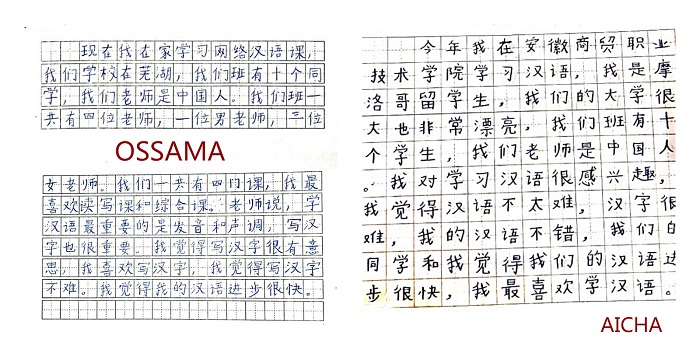 现在我在家学习网络汉语课,
我们学校在芜湖,我们班有十个同
学,我们老师是中国人。我们班一
共有四位老师,一位男老师,三位
OSSAMA
女老师。我们一共有四门课,我最
喜欢读写课和综合课。老师说,学
汉语最重要的是发音和声调,写汉
字也很重要。我觉得写汉字很有意
思,我喜欢写汉字,我觉得写汉字
不难。我觉得我的汉语进步很快。
今年我在安徽商贸职业
技术学院学习汉语,我是摩
洛哥留学生,我们的大学很
大也非常漂亮,我们班有十
个学生,我们老师是中国人
。我对学习汉语很感兴趣,
我觉得汉语不太难,汉字很
难,我的汉语不错,我们的
同学和我觉得我们的汉语进
步很快,我最喜欢学汉语。
AICHA